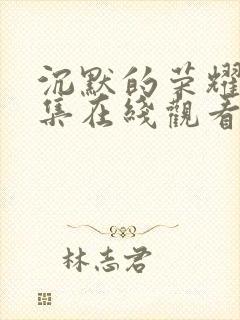 沉默的荣耀
集在綫觀看
林志君